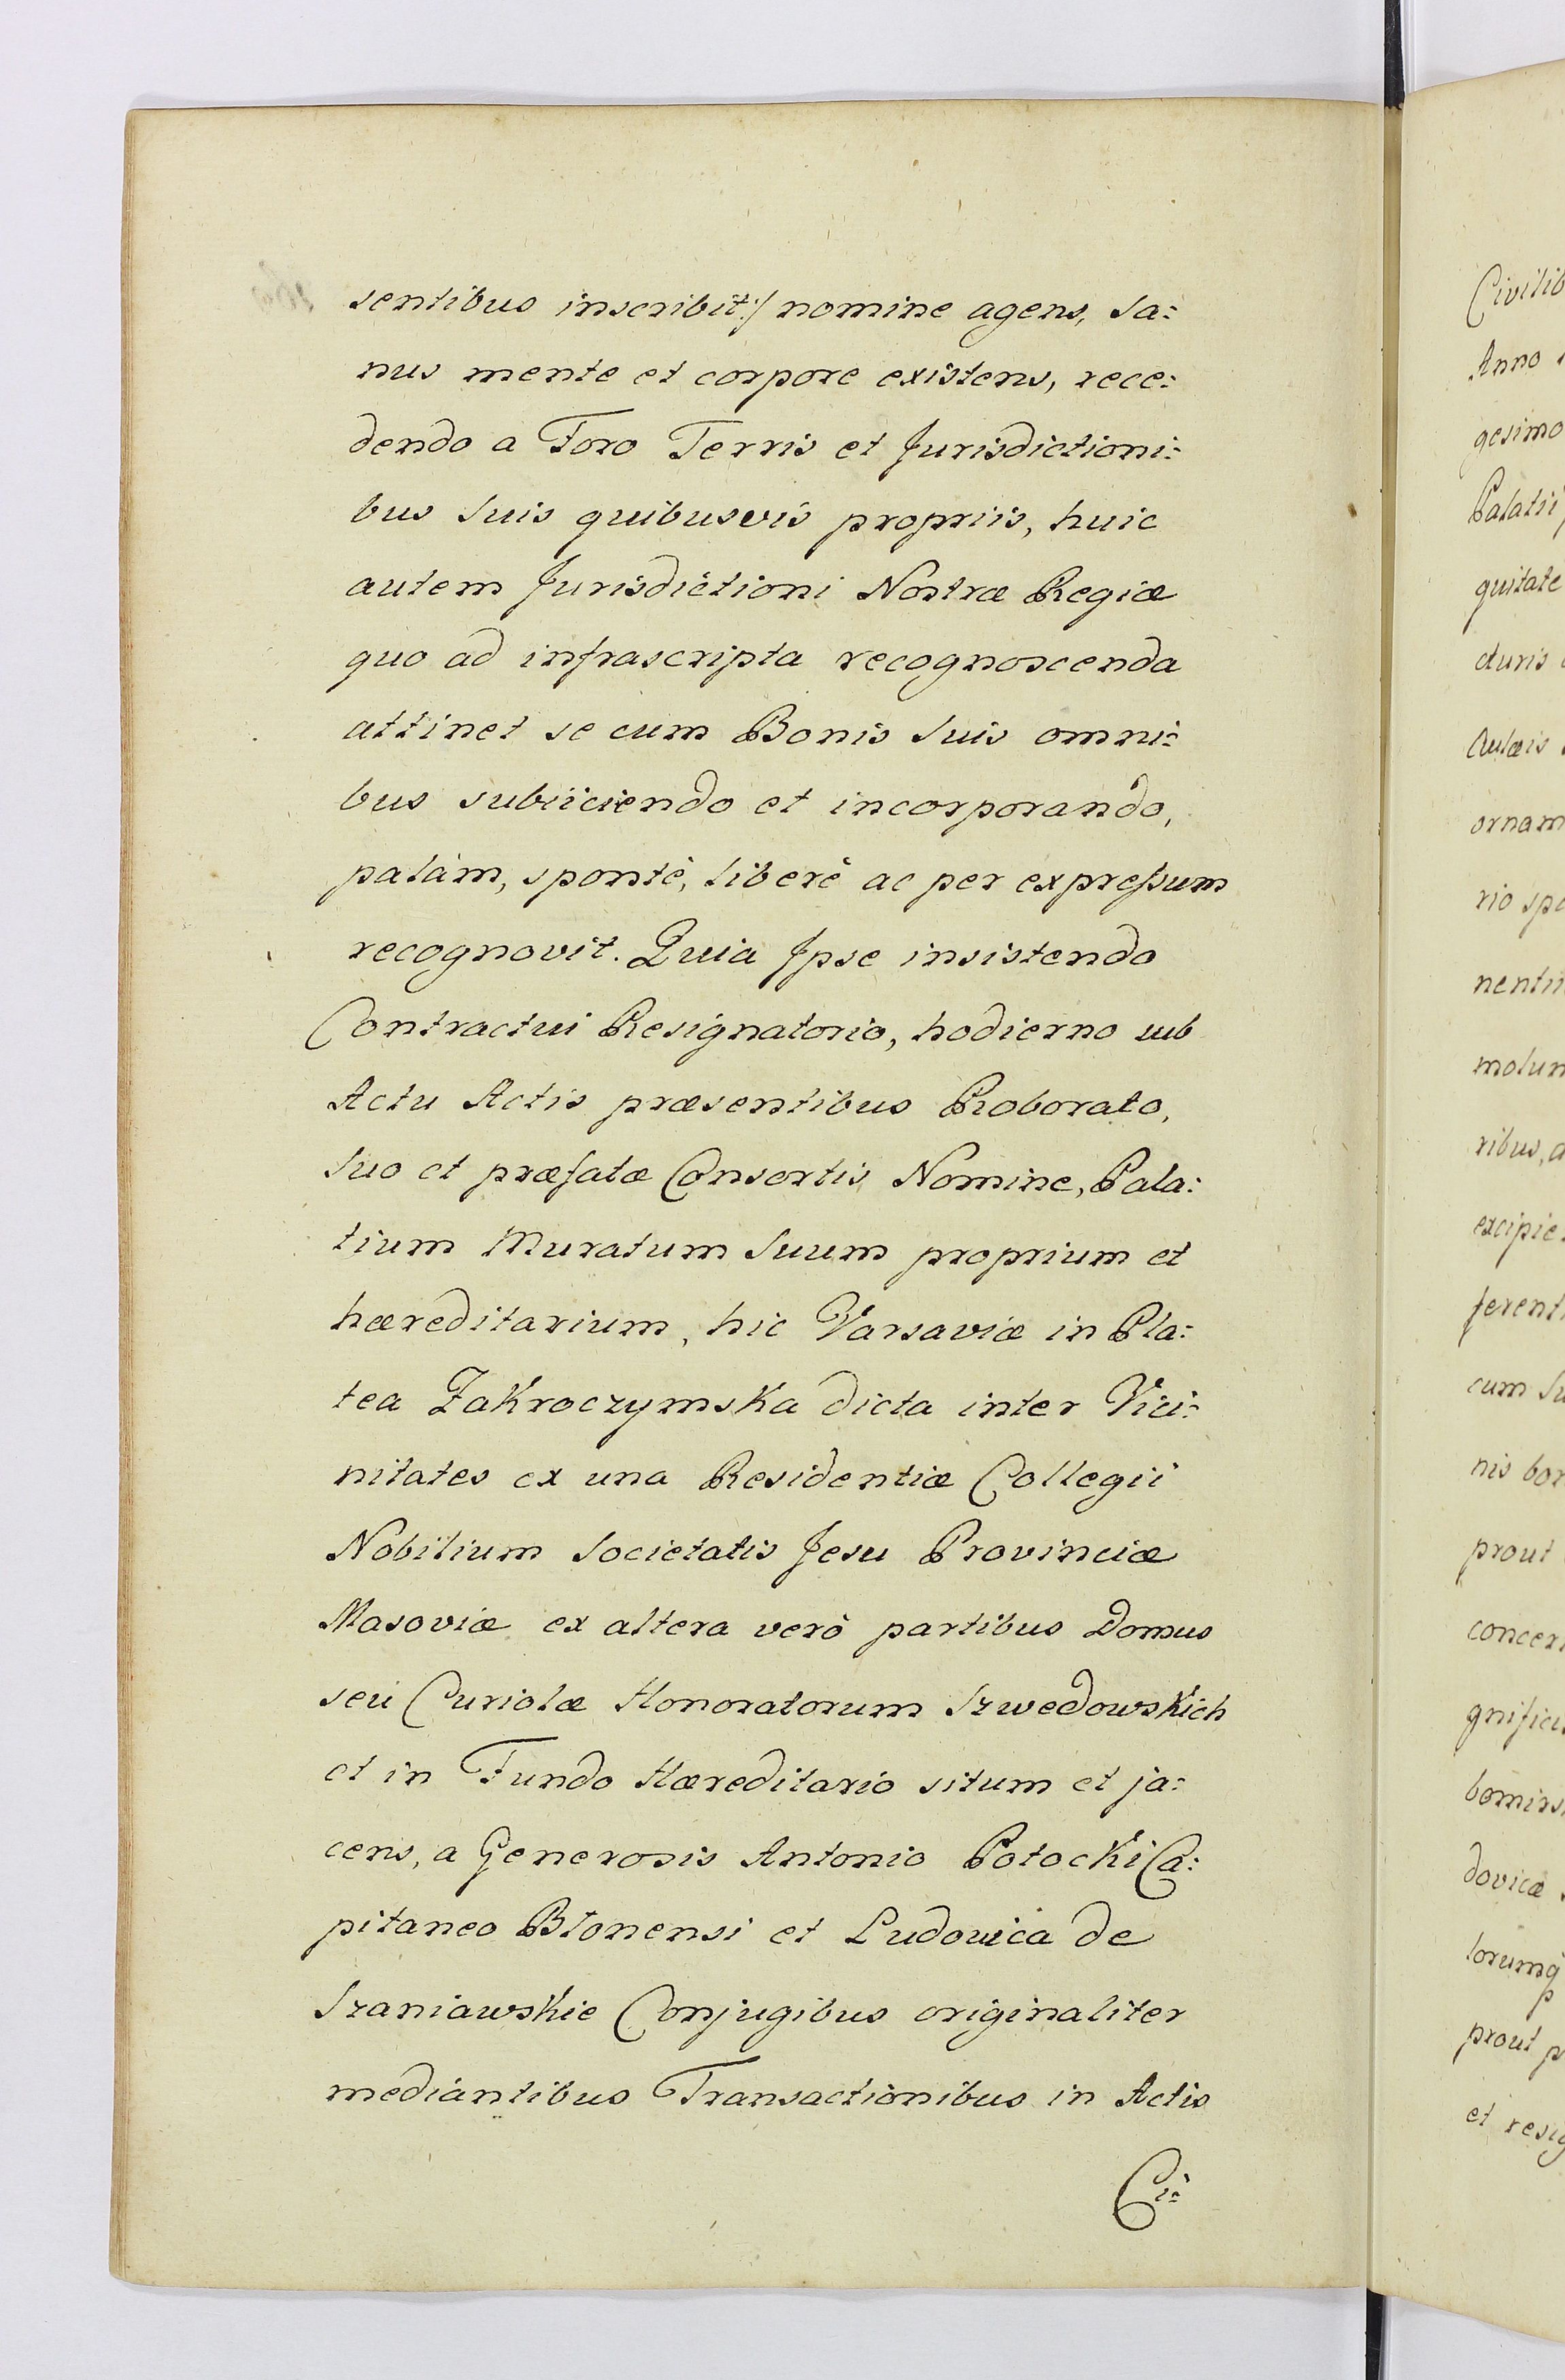 sentibus inscribit:/ nomine agens, Sa:
nus mente et corpore existens, rece:
dendo a Foro Terris et Jurisdictioni:
bus Suis quibusvis propriis, huic
autem Jurisdictioni Nostræ Regiæ
quo ad infrascripta recognoscenda
attinet se cum Bonis Suis omni:
bus subiiciendo et incorporando,
palàm, spontè, liberè ac per expressum
recognovit. Quia Ipse insistendo
Contractui Resignatorio, hodierno sub
Actu Actis præsentibus Roborato,
Suo et præfatæ Consortis Nomine, Pala:
tium Muratum Suum proprium et
hæreditarium, hic Varsaviæ in Pla:
tea Zakroczymska dicta inter Vici:
nitates ex una Residentiæ Collegii
Nobilium Societatis Jesu Provinciæ
Masoviæ ex altera verò partibus Domus
seu Curiolæ Honoratorum Szwedowskich
et in Fundo Hæreditario situm et ja:
cens, a Generosis Antonio Potocki Ca:
pitaneo Blonensi et Ludovica de
Szaniawskie Conjugibus originaliter
mediantibus Transactionibus in Actis
Ci:
Civilib
Anno
gesimo
Palatii
quitate
cturis
Aulæis
ornam
rio spe
nentii
molum
ribus, a
excipie
ferent
cum Su
nis bon
prout
concer
gnifici
bomirs
dovicæ
lorumq
prout p
et resig